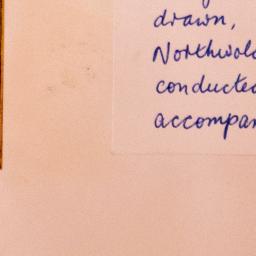 drawn,
Northwol
conducte
accompa